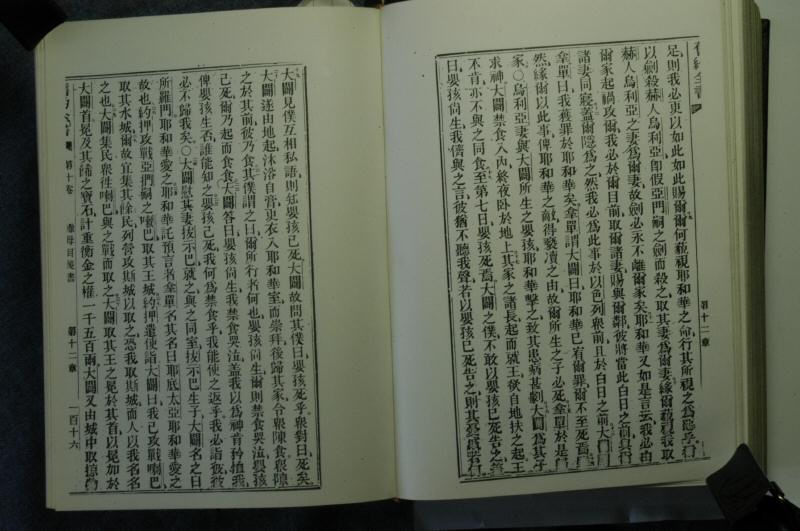 第十二章
足則我必更以如此如此賜爾爾何藐視耶和華之命行其所視之為惡乎爾
以劍殺赫人烏利亞卽假亞捫嗣之劍而殺之取其妻為爾妻緣爾藐視我取
赫人烏利亞之妻為爾妻故劍必永不離爾家矣耶和華又如是言云我必由
爾家起禍攻爾我必於爾目前取爾諸妻賜與爾鄰彼將當此白日之前與爾
諸妻同寢蓋爾隱為之然我必為此事於以色列衆前且於白日之前大闢謂
拿單曰我獲罪於耶和華矣拿單謂大闢曰耶和華已宥爾罪爾不至死焉
然緣爾以此事俾耶和華之敵得褻瀆之由故爾所生之子必死拿單於是歸
家○烏利亞妻與大闢所生之嬰孩耶和華擊之致其患病甚劇大闢為其子
求神大闢禁食入內終夜卧於地上其家之諸長起而就王欲自地扶之起王
不肯亦不與之同食至第七日嬰孩死焉大闢之僕不敢以嬰孩已死告之
曰嬰孩尚生我儕與之言彼猶不聽我聲若以嬰孩已死告之則其
大闢見僕互相私語則知嬰孩已死大闢故問其僕曰嬰孩死乎衆對曰死矣
大闢遂由地起沐浴自膏更衣入耶和華室而崇拜後歸其家令衆陳食衆陳
之於其前彼乃食其僕謂之曰爾所行者何也嬰孩尚生爾則禁食哭泣嬰孩
已死爾乃起而食食大闢答曰嬰孩尚生我禁食哭泣蓋我以為神肯矜恤我
俾嬰孩生否誰能知之嬰孩已死我何為禁食乎我能使之返乎我必詣彼彼
必不歸我矣○大闢慰其妻拔示巴就之與之同室拔示巴生子大闢名之曰
所羅門耶和華愛之耶和華託預言者拿單名其名曰耶底太亞耶和華愛之
故也約押攻戰亞捫嗣之喇巴取其王城約押遣使詣大闢曰我已攻戰喇巴
取其水城爾故宜集其餘民列營攻斯城以取之恐我取斯城而人以我名名
之也大闢集民衆徃喇巴與之戰而取之大闢取其王之冕於其首以冕加於
大闢首冕及其飾之寶石計重衡金之權一千五百兩大闢又由城中取掠
第十卷
撒母耳後書
第十二章
一百十六